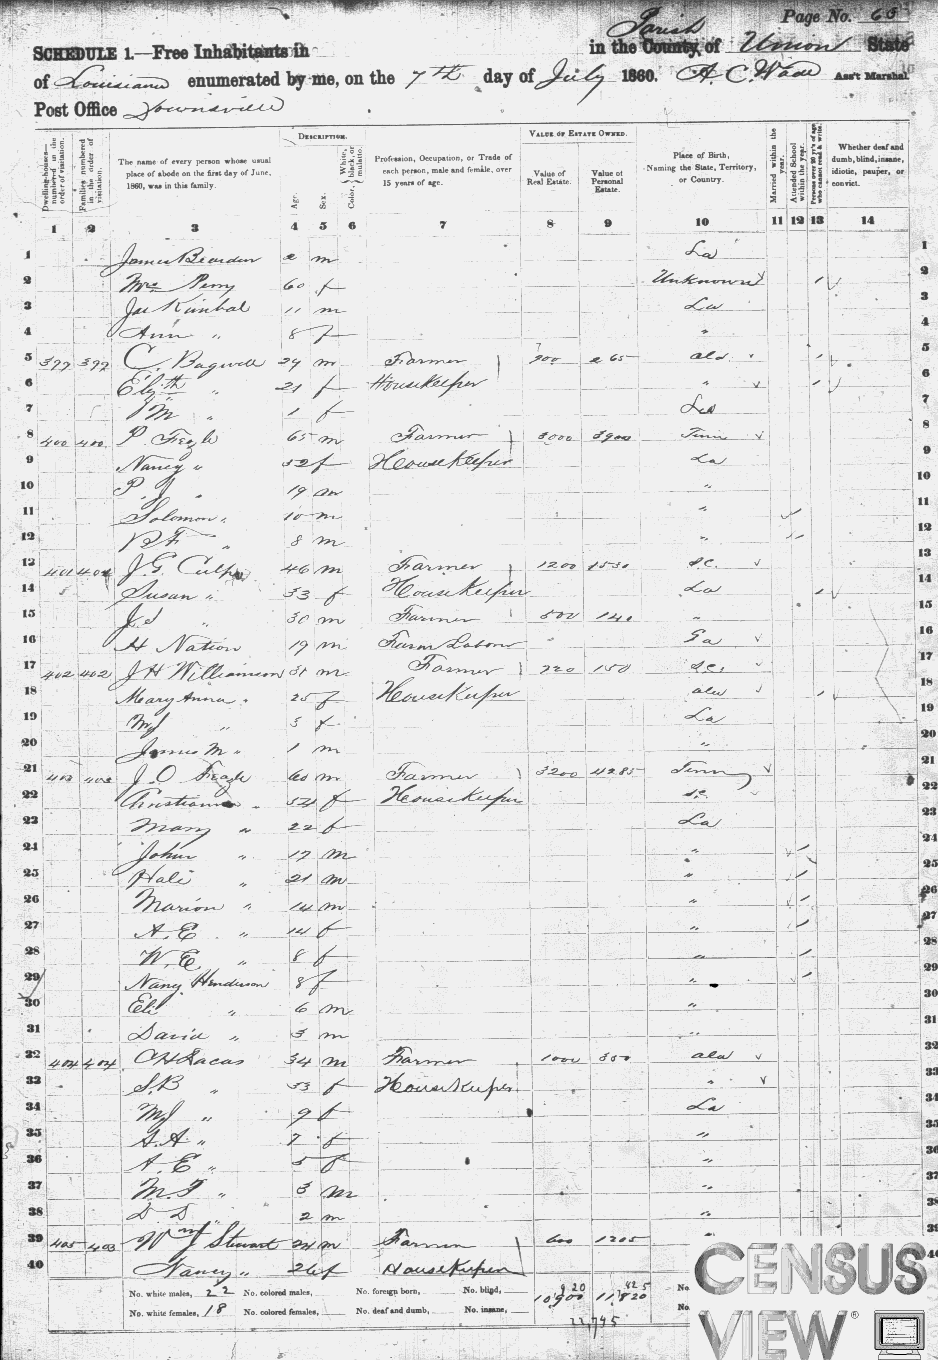 Page No. 65
SCHEDULE 1.—Free Inhabitants in Parish in the County of Union State
of Louisiana enumerated by me, on the 7th day of July 1860. A. C. Wade Ass't Marshal
Post Office Downsville
DESCRIPTION. VALUE OF ESTATE OWNED.
Dwelling-houses—numbered in the order of visitation. Families numbered in the order of visitation. The name of every person whose usual place of abode on the first day of June, 1860, was in this family. Age. Sex. Color, White, black, or mulatto. Profession, Occupation, or Trade of each person, male and female, over 15 years of age. Value of Real Estate. Value of Personal Estate. Place of Birth, Naming the State, Territory, or Country. Married within the year. Attended School within the year. Persons over 20 y'rs of age who cannot read & write. Whether deaf and dumb, blind, insane, idiotic, pauper, or convict.
1 2 3 4 5 6 7 8 9 10 11 12 13 14
1 James Bearden 2 m La 1
2 Mrs Perry 60 f Unknown 1 2
3 Jas Kimbal 11 m La 3
4 Ann " 8 f " 4
5 399 399 C. Bagwell 29 m Farmer 900 265 Ala 1 5
6 Elizth " 21 f HouseKeeper " 1 6
7 M " 1 f La 7
8 400 400 P. Feazle 65 m Farmer 3000 3900 Tenn 8
9 Nancy " 52 f HouseKeeper La 9
10 P J " 19 m " 10
11 Solomon " 10 m " 11
12 " 8 m " 12
13 401 401 J. G. Culp 46 m Farmer 1200 1530 SC. 13
14 Susan " 33 f HouseKeeper La 1 14
15 J. S " 30 m Farmer 500 140 " 15
16 H Nation 19 m Farm Labour Ga 16
17 402 402 J H Williamson 31 m Farmer 220 150 SC. 17
18 Mary Anna " 25 f HouseKeeper Ala 1 18
19 MJ " 3 f La 19
20 James M " 1 m " 20
21 403 403 J. O. Feazle 60 m Farmer 3200 4285 Tenn 21
22 Christianna " 54 f HouseKeeper SC. 22
23 Mary " 22 f La 23
24 John " 17 m " 24
25 Hali " 21 m " 25
26 Marion " 14 m " 26
27 A. E. " 14 f " 27
28 W. E. " 8 f " 28
29 Nancy Henderson 8 f " 29
30 Eli " 6 m " 30
31 David " 3 m " 31
32 404 404 C H Lacas 34 m Farmer 1000 350 Ala 32
33 S. B " 33 f HouseKeeper " 33
34 MJ " 9 f La 34
35 S. A. " 7 f " 35
36 A. E " 5 f " 36
37 M. T " 3 m " 37
38 D D " 2 m " 38
39 405 403 Wm J Stewart 24 m Farmer 600 1205 39
40 Nancy " 26 f HouseKeeper 40
No. white males, 22 No. colored males, No. foreign born, No. blind, 920 425 No
No. white females, 18 No. colored females, No. deaf and dumb, No. insane, 10,900 11,820 No.
22,745
CENSUS
VIEW®